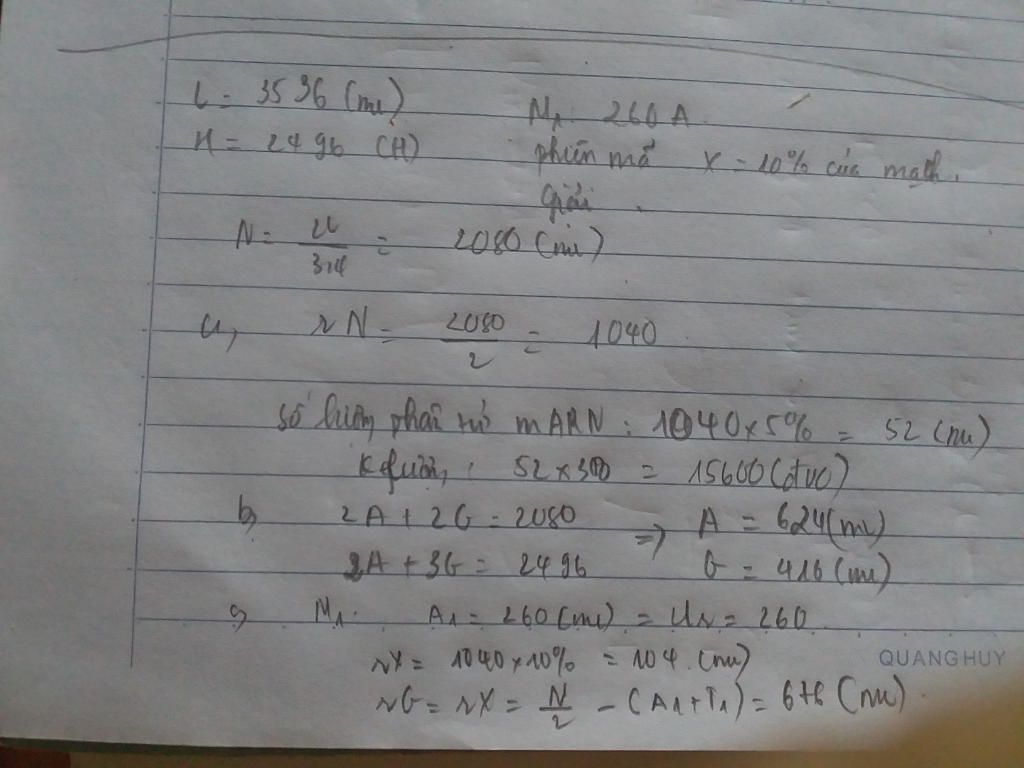 L = 3536 (nu) M1: 260 A.
H = 2496 (H) phiên mã X = 10% của mạch.
Giải.
N = 2L/3,4 = 2080 (nu)
a, rN = 2080/2 = 1040
số lượng phân tử mARN: 1040 x 5% = 52 (nu)
K lượng: 52 x 300 = 15600 (đvc)
b, 2A + 2G = 2080 => A = 624 (nu)
2A + 3G = 2496 G = 416 (nu)
c, M1: A1 = 260 (nu) = UN = 260
rX = 1040 x 10% = 104. (nu)
QUANG HUY
rG = rX = N/2 - (A1 + T1) = 676 (nu).